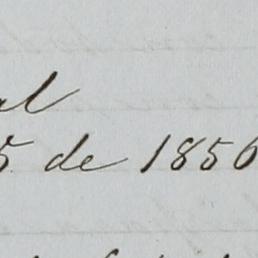 al
5 de 1856